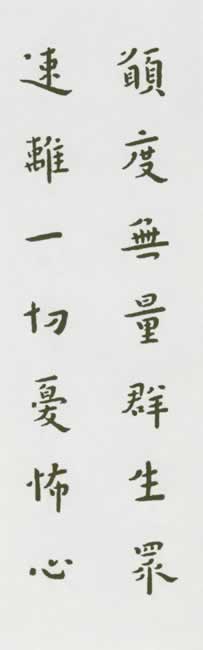 願度無量群生眾
速離一切憂怖心